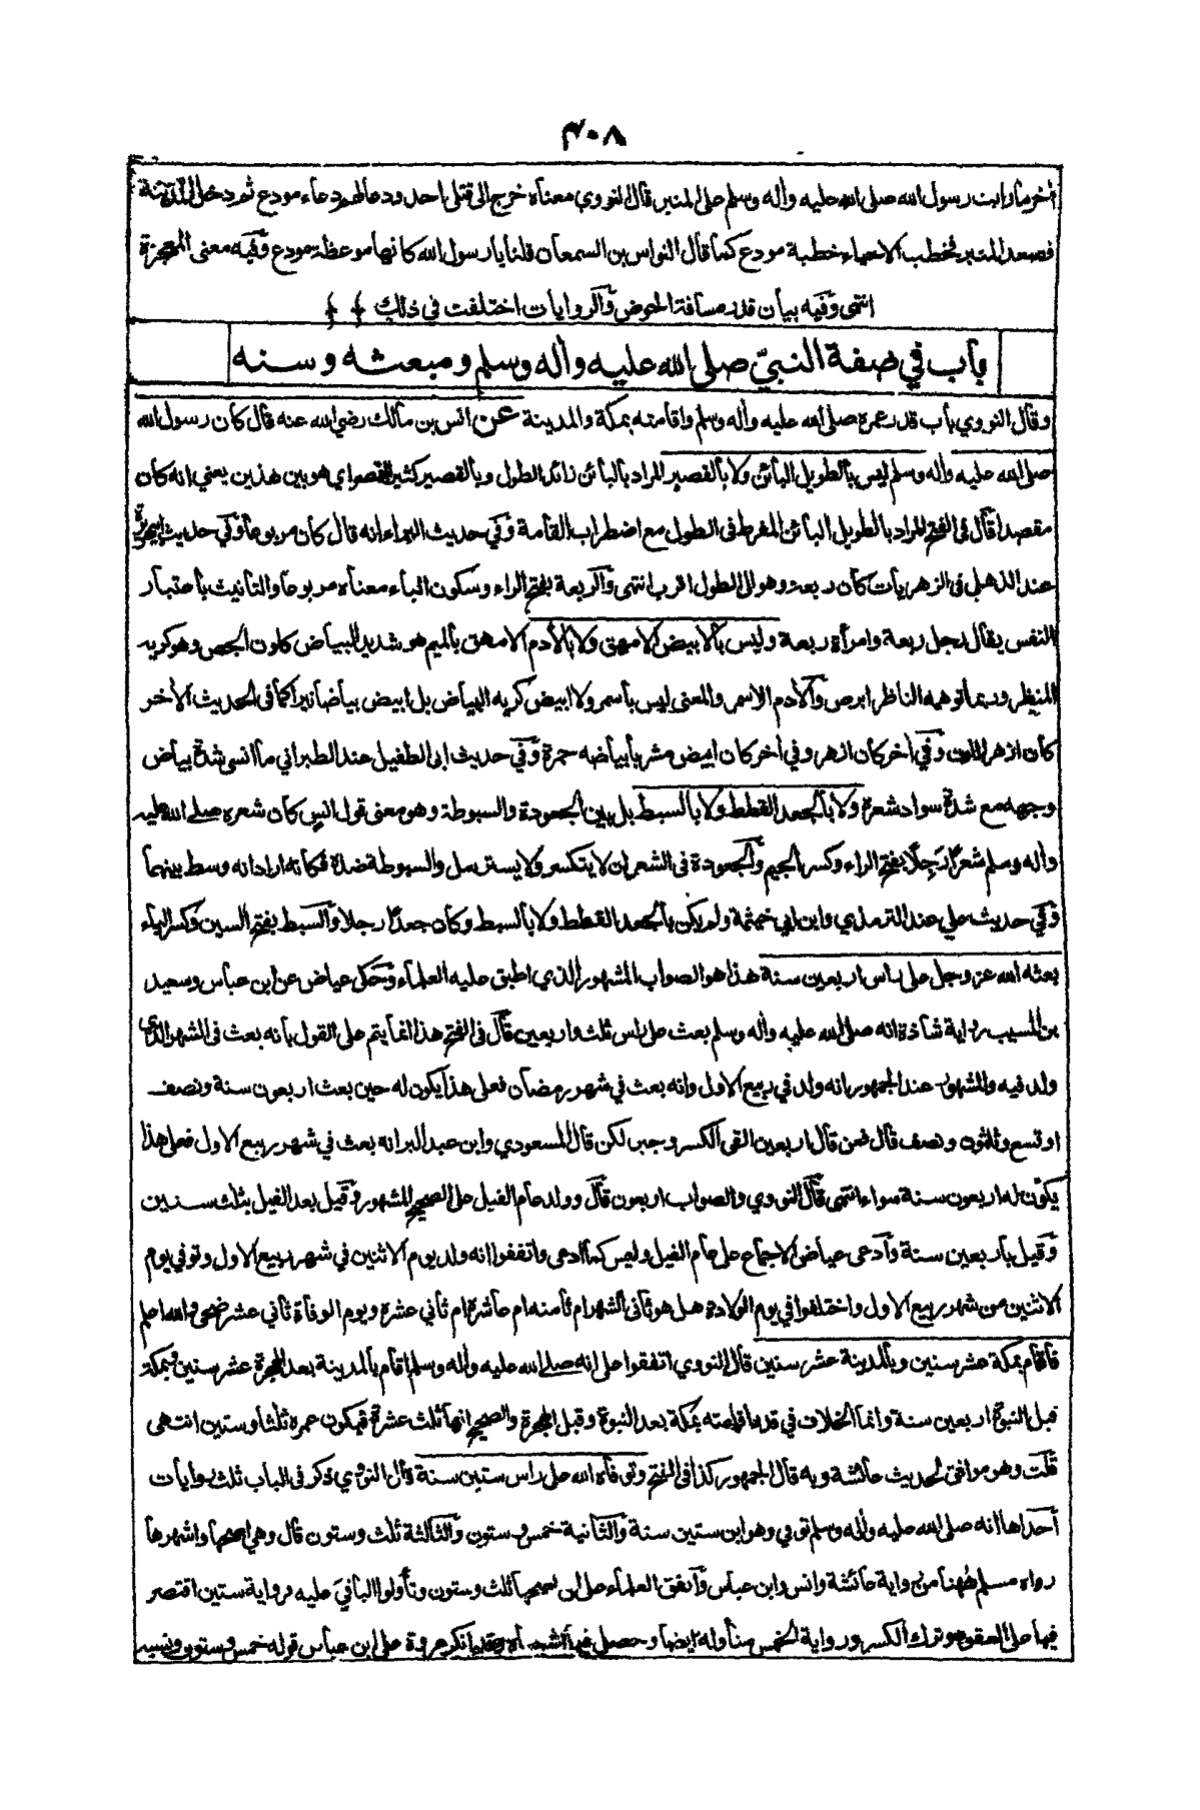 ٣٠٨
أخر ما رايت رسول الله صلى الله عليه واله وسلم على المنبر قال النووي معناه خرج الى قتلى احد ودعا لهم دعاء مودع ثم دخل المدينة
فصعد المنبر فخطب الاحياء خطبة مودع كما قال النواس بن السمعان قلنا يا رسول الله كانها موعظة مودع وفيه معنى المعجزة
انتهى وفيه بيان قدر مسافة الحوض والروايات اختلفت في ذلك
باب في صفة النبيّ صلى الله عليه واله وسلم ومبعثه وسنه
وقال النووي باب قدر عمره صلى الله عليه واله وسلم واقامته بمكة والمدينة عن انس بن مالك رضي الله عنه قال كان رسول الله
صلى الله عليه واله وسلم ليس بالطويل البائن ولا بالقصير المراد بالبائن زائد الطول وبالقصير كثير القصر اي هو بين هذين يعني انه كان
مقصدا قال في الفتح المراد بالطويل البائن المفرط في الطول مع اضطراب القامة وفي حديث البراء انه قال كان مربوعا وفي حديث ابي هريرة
عند الذهلي في الزهريات كان ربعة وهو الى الطول اقرب انتهى والربعة بفتح الراء وسكون الباء معناه مربوعا والتانيث باعتبار
النفس يقال رجل ربعة وامرأة ربعة وليس بالابيض الامهق ولا بالأدم الامهق بالميم هو شديد البياض كلون الجص وهو كريه
المنظر وربما توهمه الناظر ابرص والأدم الاسمر والمعنى ليس باسمر ولا ابيض كريه البياض بل ابيض بياضا نيرا كما في الحديث الأخر
كان ازهر اللون وفي أخر كان ازهر وفي أخر كان ابيض مشربا بياضه حمرة وفي حديث ابي الطفيل عند الطبراني ما انسى شدة بياض
وجهه مع شدة سواد شعره ولا بالجعد القطط ولا بالسبط بل بين الجعودة والسبوطة وهو معنى قول انس كان شعره صلى الله عليه
واله وسلم شعرًا رَجِلًا بفتح الراء وكسر الجيم والجعودة في الشعر ان لا يتكسر ولا يسترسل والسبوطة ضدة فكانه اراد انه وسط بينهما
وفي حديث علي عند الترمذي وابن ابي خيثمة ولم يكن بالجعد القطط ولا بالسبط وكان جعدًا رجلا والسبط بفتح السين وكسر الباء
بعثه الله عز وجل على راس اربعين سنة هذا هو الصواب المشهور الذي اطبق عليه العلماء وحكى عياض عن ابن عباس وسعيد
بن المسيب رواية شاذة انه صلى الله عليه واله وسلم بعث على راس ثلث واربعين قال في الفتح هذا انما يتم على القول بانه بعث في الشهر الذي
ولد فيه والمشهور عند الجمهور انه ولد في ربيع الاول وانه بعث في شهر رمضان فعلى هذا يكون له حين بعث اربعون سنة ونصف
او تسع وثلثون ونصف قال فمن قال اربعين القى الكسر وجبر لكن قال المسعودي وابن عبد البر انه بعث في شهر ربيع الاول فعلى هذا
يكون له اربعون سنة سواء انتهى قال النووي والصواب اربعون قال وولد عام الفيل على الصحيح المشهور وقيل بعد الفيل بثلث سنين
وقيل باربعين سنة وأدعى عياض الاجماع على عام الفيل وليس كما ادعى واتفقوا انه ولد يوم الاثنين في شهر ربيع الاول وتوفي يوم
الاثنين من شهر ربيع الاول واختلفوا في يوم الولادة هل هو ثاني الشهر ام ثامنه ام عاشره ام ثاني عشرة ويوم الوفاة ثاني عشر ضحى والله اعلم
فاقام بمكة عشر سنين وبالمدينة عشر سنين قال النووي اتفقوا على انه صلى الله عليه واله وسلم اقام بالمدينة بعد الهجرة عشر سنين وبمكة
قبل النبوة اربعين سنة وانما الخلاف في قدر اقامته بمكة بعد النبوة وقبل الهجرة والصحيح انها ثلث عشرة فيكون عمره ثلثا وستين انتهى
قلت وهو موافق لحديث عائشة وبه قال الجمهور كذا في الفتح وتوفاه الله على راس ستين سنة قال النووي ذكر في الباب ثلث روايات
أحداها انه صلى الله عليه واله وسلم توفي وهو ابن ستين سنة والثانية خمس وستون والثالثة ثلث وستون قال وهي اصحها واشهرها
رواه مسلم ههنا من رواية عائشة وانس وابن عباس واتفق العلماء على ان اصحها ثلث وستون وتأولوا الباقي عليه فرواية ستين اقتصر
فيها على العقود وترك الكسر ورواية الخمس متأولة ايضا وحصل فيها اشتباه وقد انكر عروة على ابن عباس قوله خمس وستون ونسبه